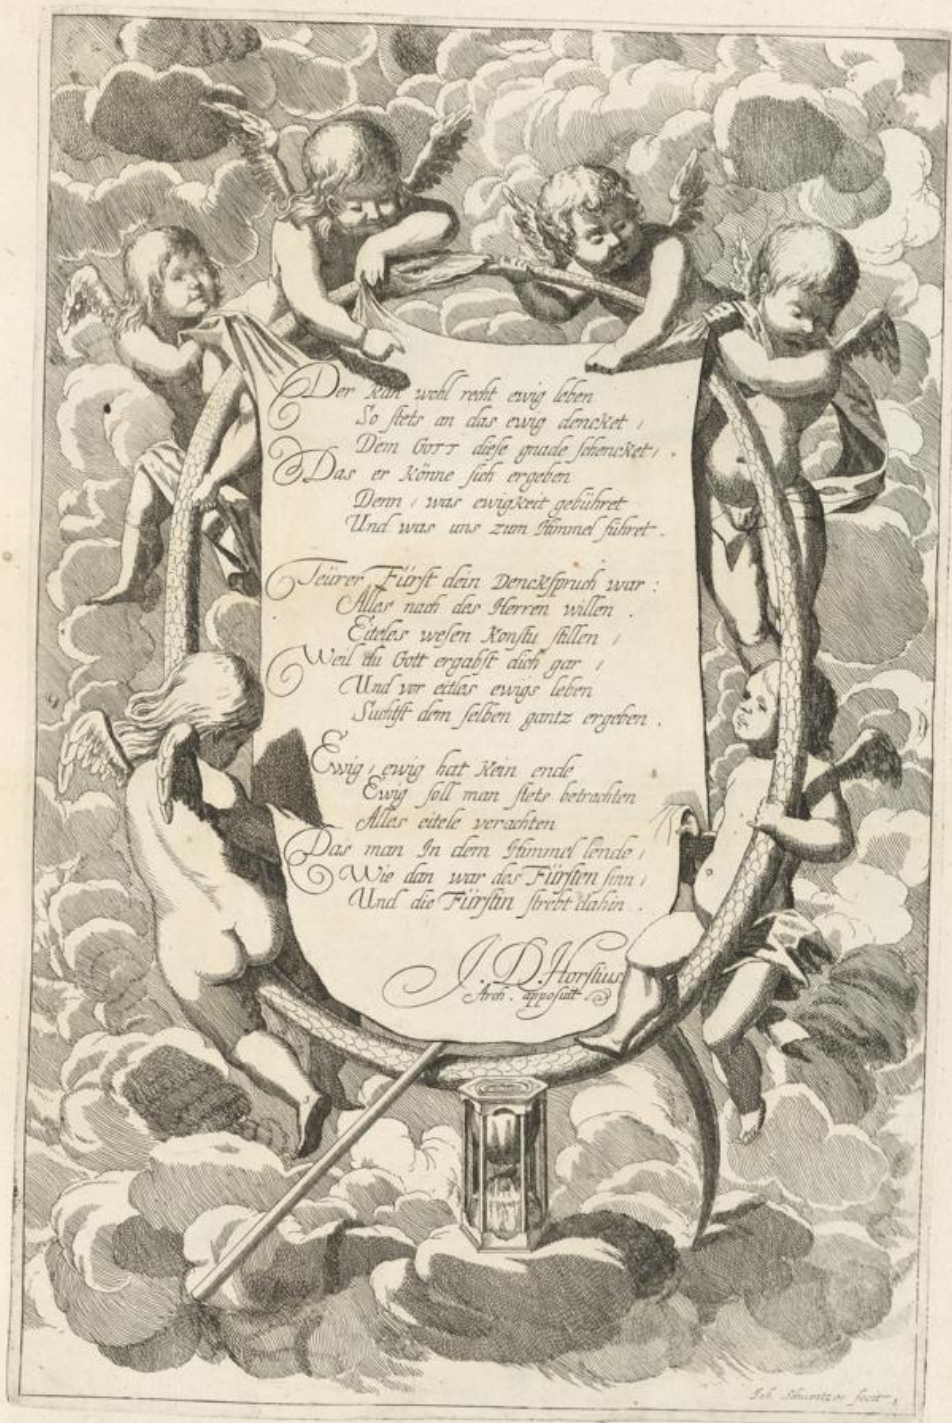 Der kan wohl recht ewig leben
So stets an das ewig dencket /
Dem GOTT diese gnade schencket /
Das er könne sich ergeben
Denn / was ewigkeit gebühret
Und was uns zum Himmel führet .
Teürer Fürst dein Denckspruch war :
Alles nach des Herren willen .
Eiteles wesen konstu stillen /
Weil du Gott ergabst dich gar /
Und vor eitles ewigs leben
Suchtst dem selben gantz ergeben .
Ewig / ewig hat kein ende
Ewig soll man stets betrachten
Alles eitele verachten
Das man In dem Himmel lende /
Wie dan war des Fürsten sinn /
Und die Fürstin strebt dahin .
J. D. Horstius
Arch . apposuit
Joh. Schweitzer fecit